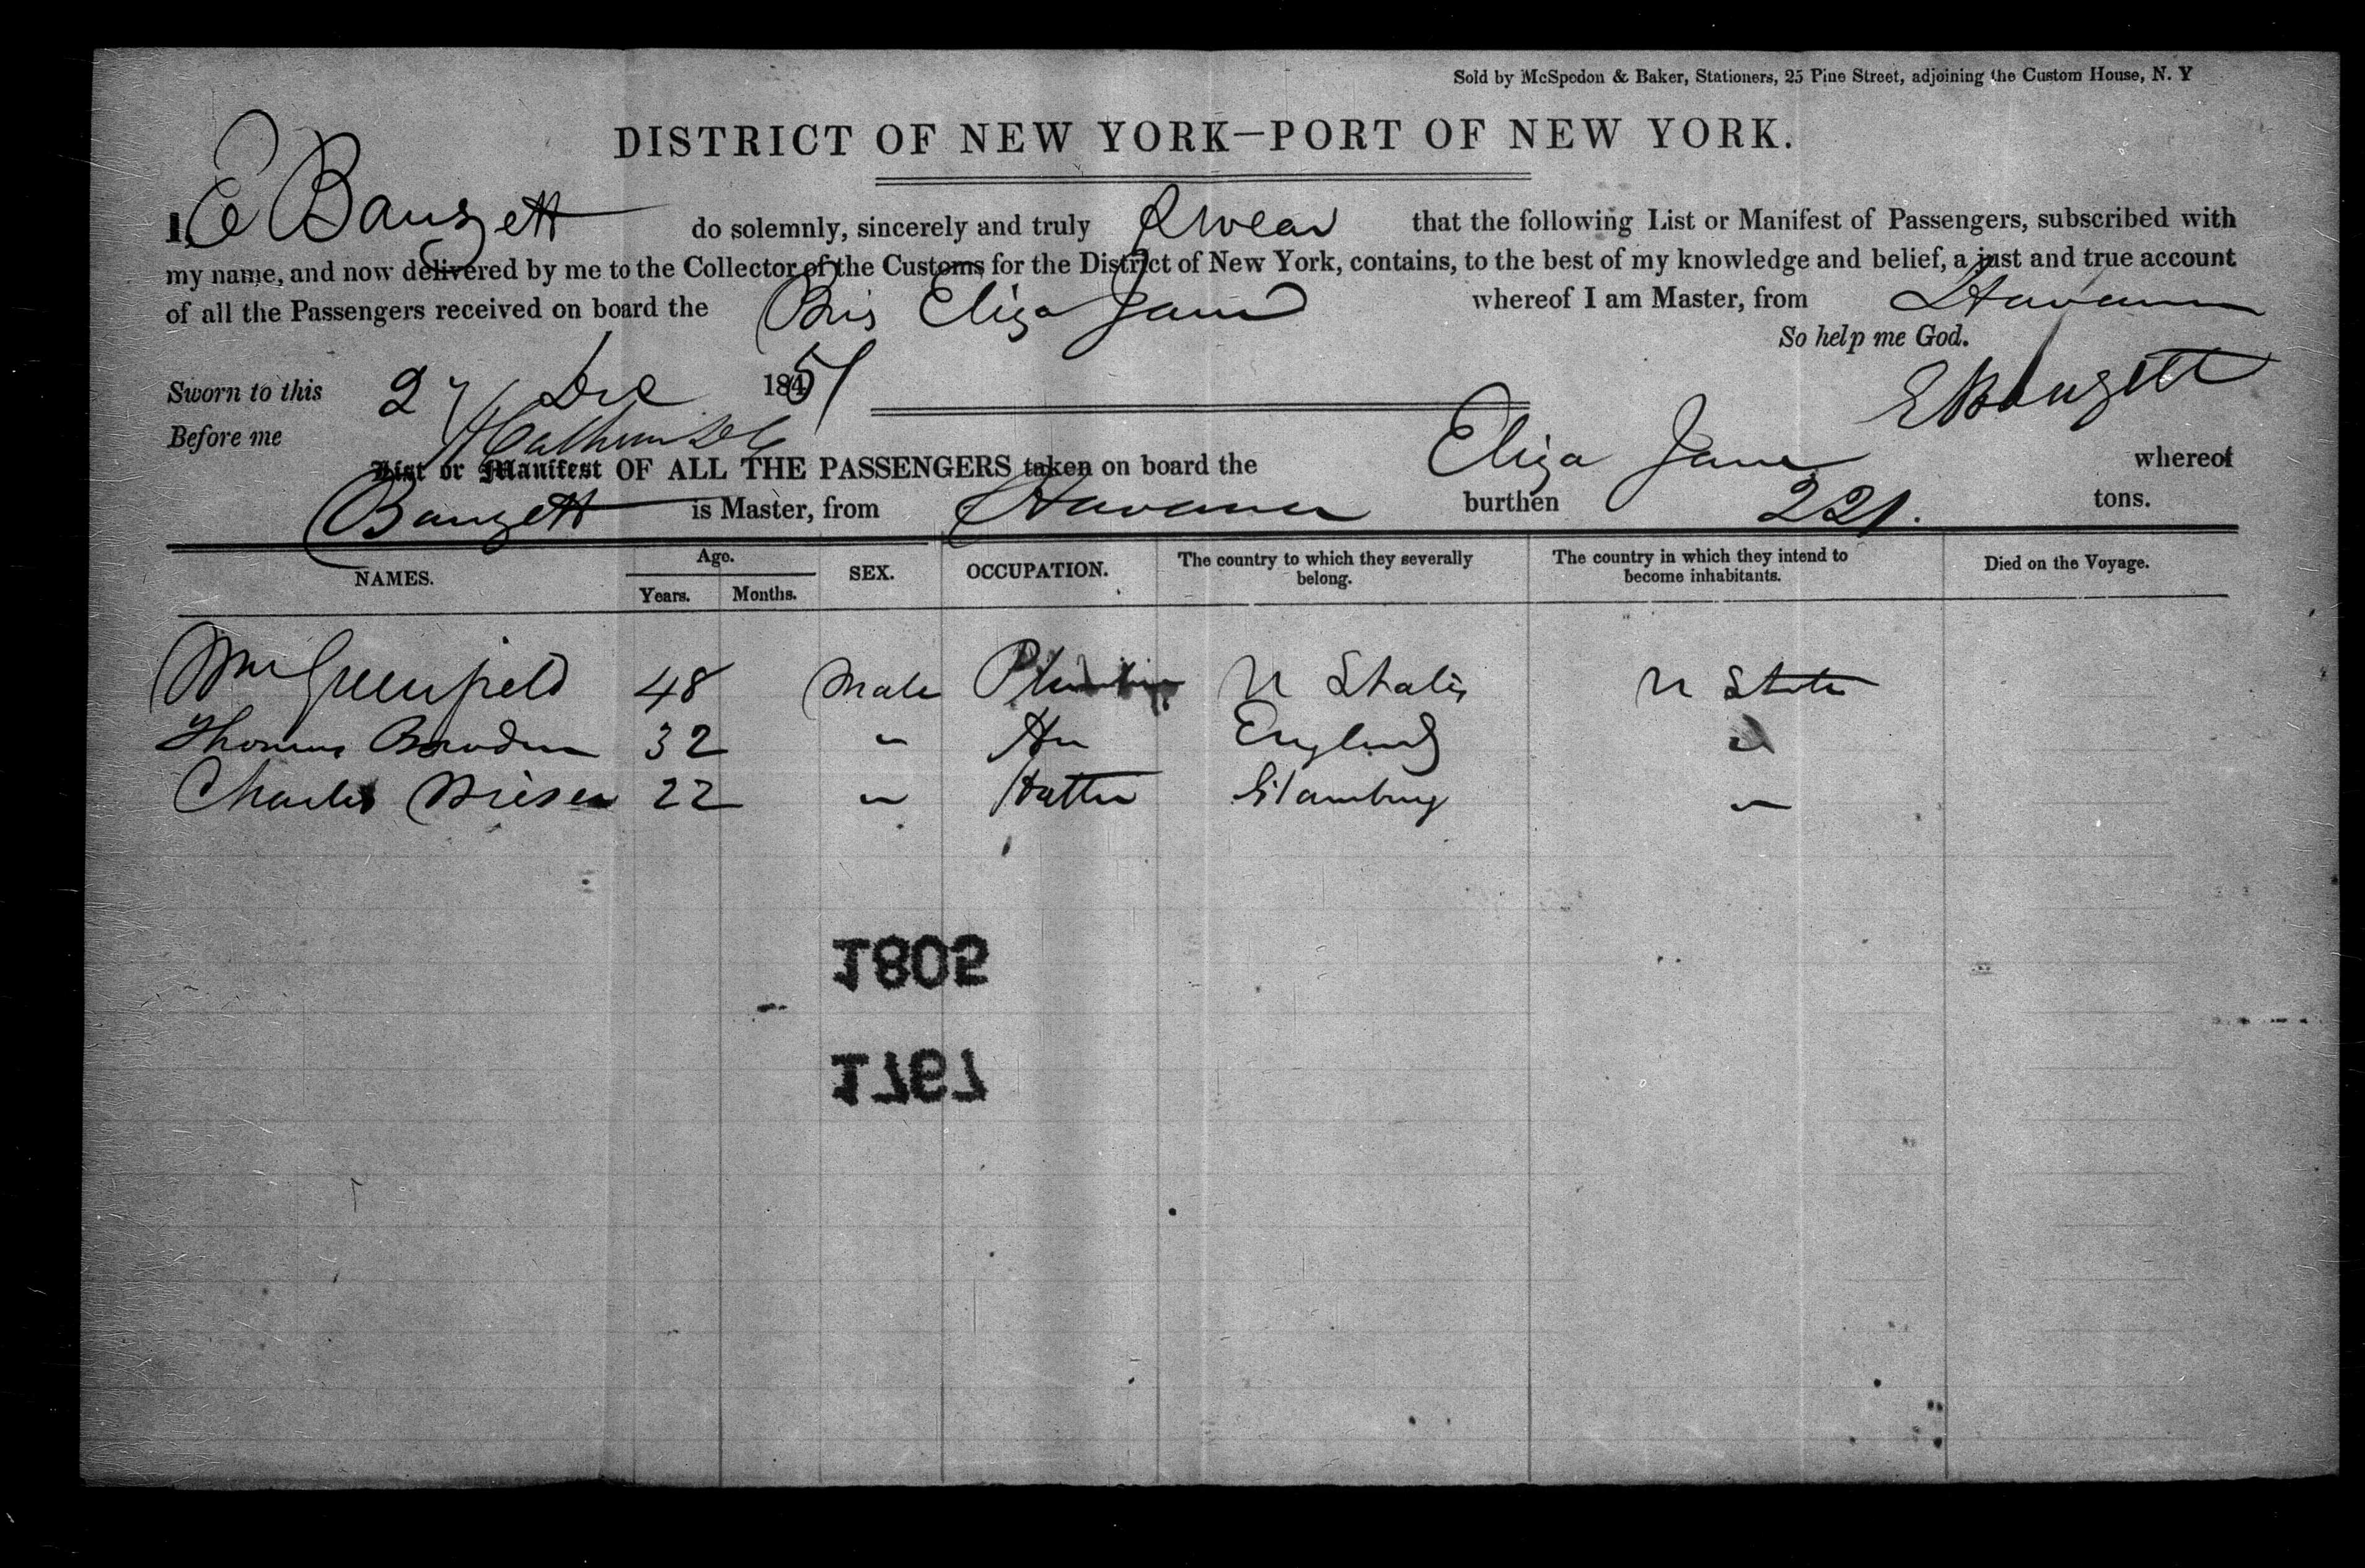 Sold by McSpedon & Baker, Stationers, 25 Pine Street, adjoining the Custom House, N. Y
DISTRICT OF NEW YORK—PORT OF NEW YORK.
I, E Bangett do solemnly, sincerely and truly Swear that the following List or Manifest of Passengers, subscribed with
my name, and now delivered by me to the Collector of the Customs for the District of New York, contains, to the best of my knowledge and belief, a just and true account
of all the Passengers received on board the Brig Eliza Jane whereof I am Master, from Havana
So help me God.
Sworn to this 27 Dec 1851
E Bangett
Before me
List or Manifest OF ALL THE PASSENGERS taken on board the Eliza Jane whereof
Bangett is Master, from Havana burthen 221. tons.
NAMES. Age. Years. Months. SEX. OCCUPATION. The country to which they severally belong. The country in which they intend to become inhabitants. Died on the Voyage.
Wm Greenfield 48 Male U States U States
Thomas 32 " England "
Charles 22 " Hatter Hamburg "
1805
1767